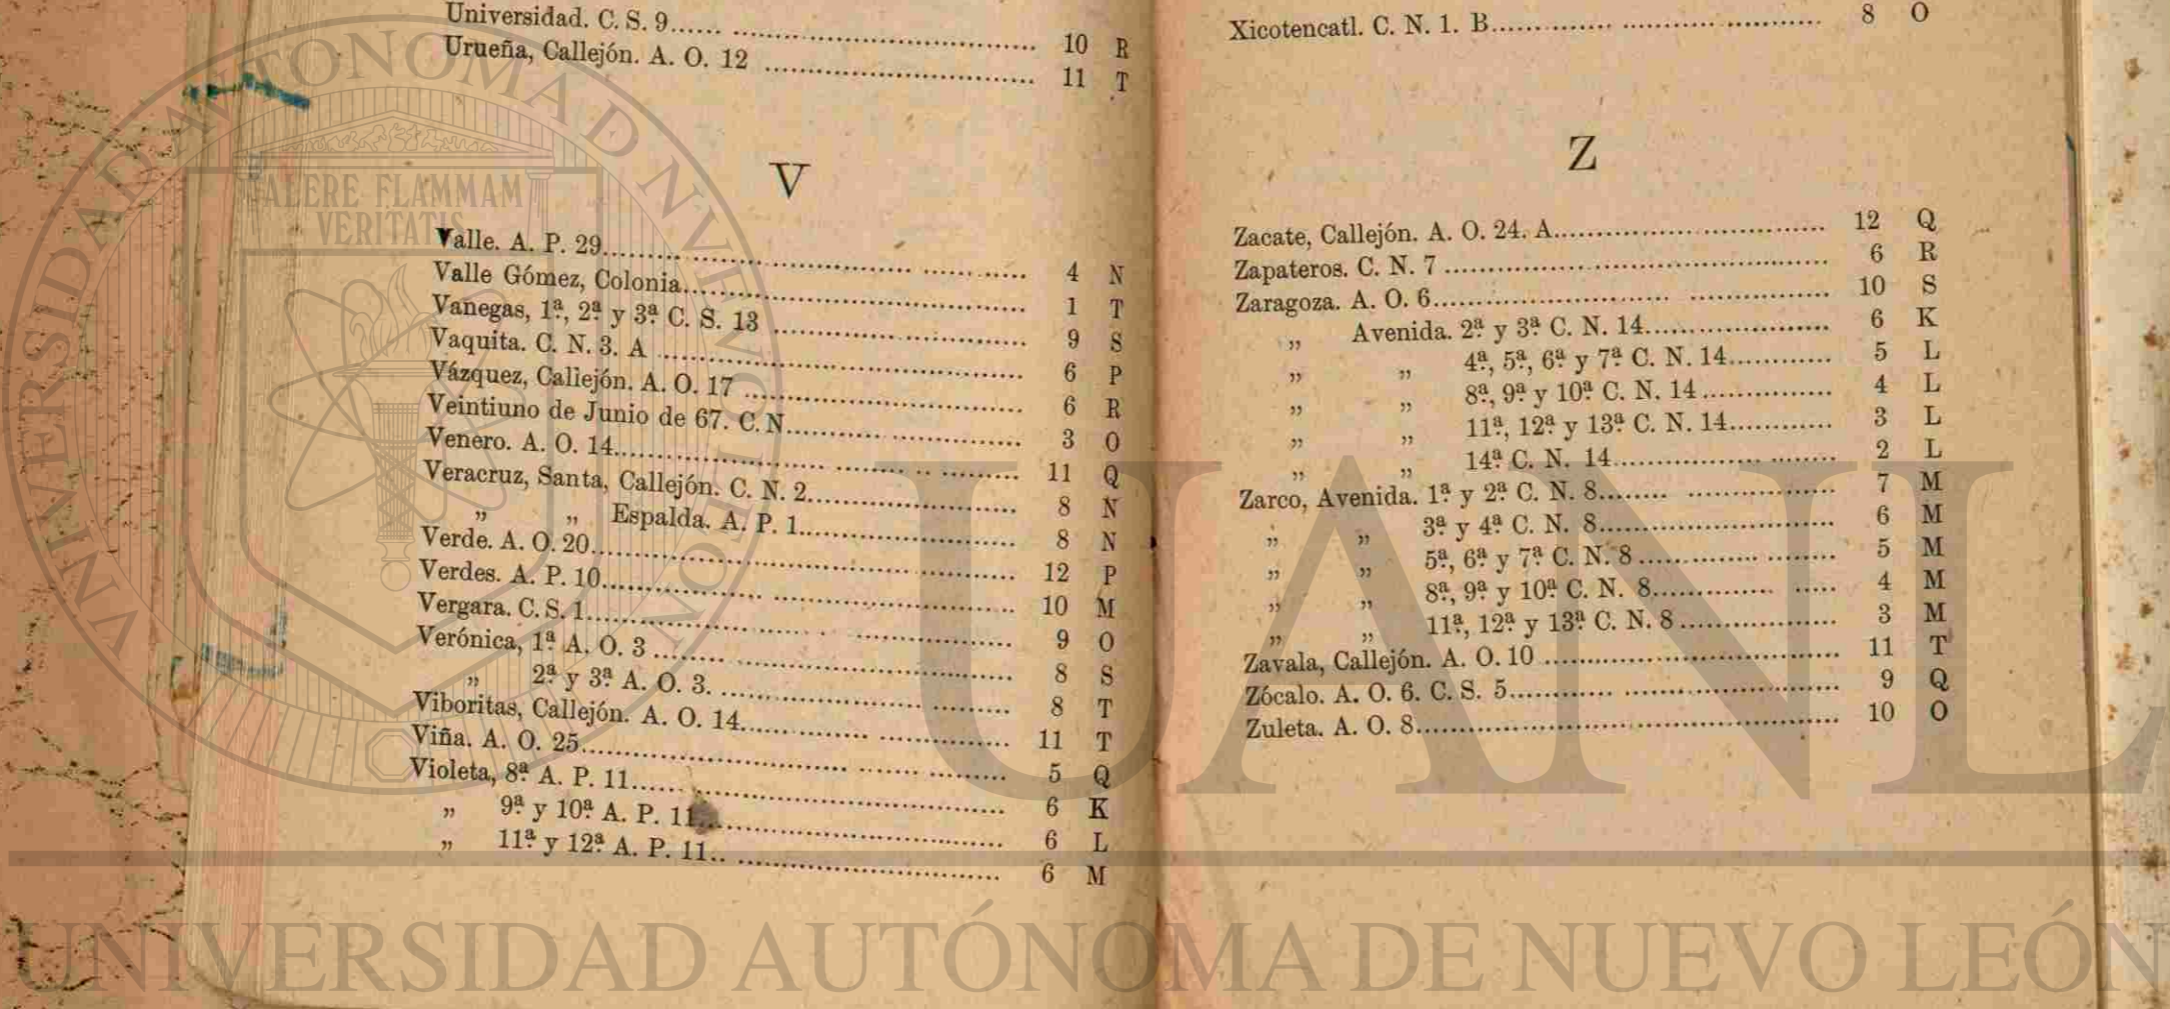 Universidad. C. S. 9...... .................................... 10 R
Urueña, Callejón. A. O. 12 .................................... 11 T
V
Valle. A. P. 29......... ............................ ...... ...... 4 N
Valle Gómez, Colonia............................................. 1 T
Vanegas, 1ª, 2ª y 3ª C. S. 13 .................................. 9 S
Vaquita. C. N. 3. A ................................................ 6 P
Vázquez, Callejón. A. O. 17 ..................................... 6 R
Veintiuno de Junio de 67. C. N.......... ................ 3 O
Venero. A. O. 14........................ ......... .. ......... 11 Q
Veracruz, Santa, Callejón. C. N. 2............................. 8 N
„ „ Espalda. A. P. 1............................. 8 N
Verde. A. O. 20....................................................... 12 P
Verdes. A. P. 10....................... ............................. 10 M
Vergara. C. S. 1........................ .. . ..................... 9 O
Verónica, 1ª A. O. 3 ......... .................................. 8 S
„ 2ª y 3ª A. O. 3. ........................ ......... 8 T
Viboritas, Callejón. A. O. 14............... ................ 11 T
Viña. A. O. 25................................ ...... ......... 5 Q
Violeta, 8ª A. P. 11...... ....................................... 6 K
„ 9ª y 10ª A. P. 11..................................... 6 L
„ 11ª y 12ª A. P. 11.. ................................ 6 M
Xicotencatl. C. N. 1. B............. ............ ............ 8 O
Z
Zacate, Callejón. A. O. 24. A................................. 12 Q
Zapateros. C. N. 7 .............................................. 6 R
Zaragoza. A. O. 6............................ ................. 10 S
„ Avenida. 2ª y 3ª C. N. 14...................... 6 K
„ „ 4ª, 5ª, 6ª y 7ª C. N. 14............ 5 L
„ „ 8ª, 9ª y 10ª C. N. 14................ 4 L
„ „ 11ª, 12ª y 13ª C. N. 14............ 3 L
„ „ 14ª C. N. 14.................. ........ 2 L
Zarco, Avenida. 1ª y 2ª C. N. 8........ .................. 7 M
„ „ 3ª y 4ª C. N. 8............................ 6 M
„ „ 5ª, 6ª y 7ª C. N. 8.............. ........ 5 M
„ „ 8ª, 9ª y 10ª C. N. 8.............. ..... 4 M
„ „ 11ª, 12ª y 13ª C. N. 8................... 3 M
Zavala, Callejón. A. O. 10 .................................... 11 T
Zócalo. A. O. 6. C. S. 5............ .......................... 9 Q
Zuleta. A. O. 8................................................... 10 O
UNIVERSIDAD AUTONOMA DE NUEVO LEON
ALERE FLAMMAM
VERITATIS
UANL
UNIVERSIDAD AUTÓNOMA DE NUEVO LEÓN